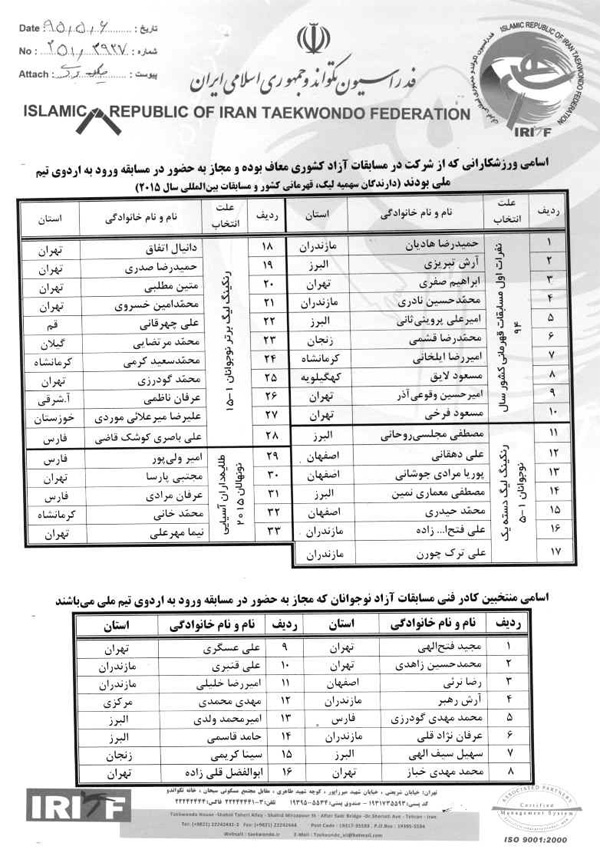 Date ۹۵/۵/۶ تاریخ :
No : ۲۵۱/۳۹۲۷ شماره :
Attach : پیوست :
فدراسیون تکواندو جمهوری اسلامی ایران
ISLAMIC REPUBLIC OF IRAN TAEKWONDO FEDERATION
ISLAMIC REPUBLIC OF IRAN TAEKWONDO FEDERATION
IRITF
اسامی ورزشکارانی که از شرکت در مسابقات آزاد کشوری معاف بوده و مجاز به حضور در مسابقه ورود به اردوی تیم
ملی بودند (دارندگان سهمیه لیگ، قهرمانی کشور و مسابقات بین‌المللی سال ۲۰۱۵)
ردیف علت انتخاب نام و نام خانوادگی استان ردیف علت انتخاب نام و نام خانوادگی استان
نفرات اول مسابقات قهرمانی کشور سال ۹۴
رنکینگ لیگ برتر نوجوانان ۱-۱۵
۱ حمیدرضا هادیان مازندران ۱۸ دانیال اتفاق تهران
۲ آرش تبریزی البرز ۱۹ حمیدرضا صدری تهران
۳ ابراهیم صفری تهران ۲۰ متین مطلبی تهران
۴ محمدحسین نادری مازندران ۲۱ محمدامین خسروی تهران
۵ امیرعلی پروینی‌ثانی البرز ۲۲ علی چهرقانی قم
۶ محمدرضا قشمی زنجان ۲۳ محمد مرتضایی گیلان
۷ امیررضا ایلخانی کرمانشاه ۲۴ محمدسعید کرمی کرمانشاه
۸ مسعود لایق کهگیلویه ۲۵ محمد گودرزی تهران
۹ امیرحسین وقوعی‌آذر تهران ۲۶ عرفان ناظمی آ.شرقی
۱۰ مسعود فرخی تهران ۲۷ علیرضا میرعلائی موردی خوزستان
رنکینگ لیگ دسته یک نوجوانان ۱-۵
۱۱ مصطفی مجلسی‌روحانی البرز ۲۸ علی یاصری کوشک قاضی فارس
طلایه‌داران آسیایی نونهالان ۲۰۱۵
۱۲ علی دهقانی اصفهان ۲۹ امیر ولی‌پور فارس
۱۳ پوریا مرادی جوشانی اصفهان ۳۰ مجتبی پارسا تهران
۱۴ مصطفی معماری نمین البرز ۳۱ عرفان مرادی فارس
۱۵ محمد حیدری اصفهان ۳۲ محمد خانی کرمانشاه
۱۶ علی فتح‌ا... زاده مازندران ۳۳ نیما مهرعلی تهران
۱۷ علی ترک چورن مازندران
اسامی منتخبین کادر فنی مسابقات آزاد نوجوانان که مجاز به حضور در مسابقه ورود به اردوی تیم ملی می‌باشند
ردیف نام و نام خانوادگی استان ردیف نام و نام خانوادگی استان
۱ مجید فتح‌الهی تهران ۹ علی عسگری تهران
۲ محمدحسین زاهدی تهران ۱۰ علی قنبری مازندران
۳ رضا نرئی اصفهان ۱۱ امیررضا خلیلی مازندران
۴ آرش رهبر مازندران ۱۲ مهدی محمدی مرکزی
۵ محمد مهدی گودرزی فارس ۱۳ امیرمحمد ولدی البرز
۶ عرفان نژاد قلی مازندران ۱۴ حامد قاسمی البرز
۷ سهیل سیف الهی البرز ۱۵ سینا کریمی زنجان
۸ محمد مهدی خباز تهران ۱۶ ابوالفضل قلی زاده تهران
IRITF
تهران: خیابان شریعتی، خیابان شهید میرزاپور، کوچه شهید طاهری، مقابل مجتمع مسکونی سبحان، خانه تکواندو
کد پستی: ۱۹۳۱۷۳۵۵۹۳ - صندوق پستی: ۵۵۳۴-۱۹۳۹۵ تلفن: ۳-۲۲۲۴۲۴۴۱ فاکس: ۲۲۲۴۲۴۴۴
Taekwondo House -Shahid Taheri Alley - Shahid Mirzapour St - After Sadr Bridge -Dr.Shariati Ave - Tehran - Iran
Tel: (+9821) 22242442-3 Fax: (+9821) 22242444 Post Code : 19317-35593 P.O.Box : 19395-5534
Websait : taekwondo.ir E-Mail : Taekwondo_iri@hotmail.com
ASSOCIATED PARTNERS
Certified
Management System
ISO 9001:2000